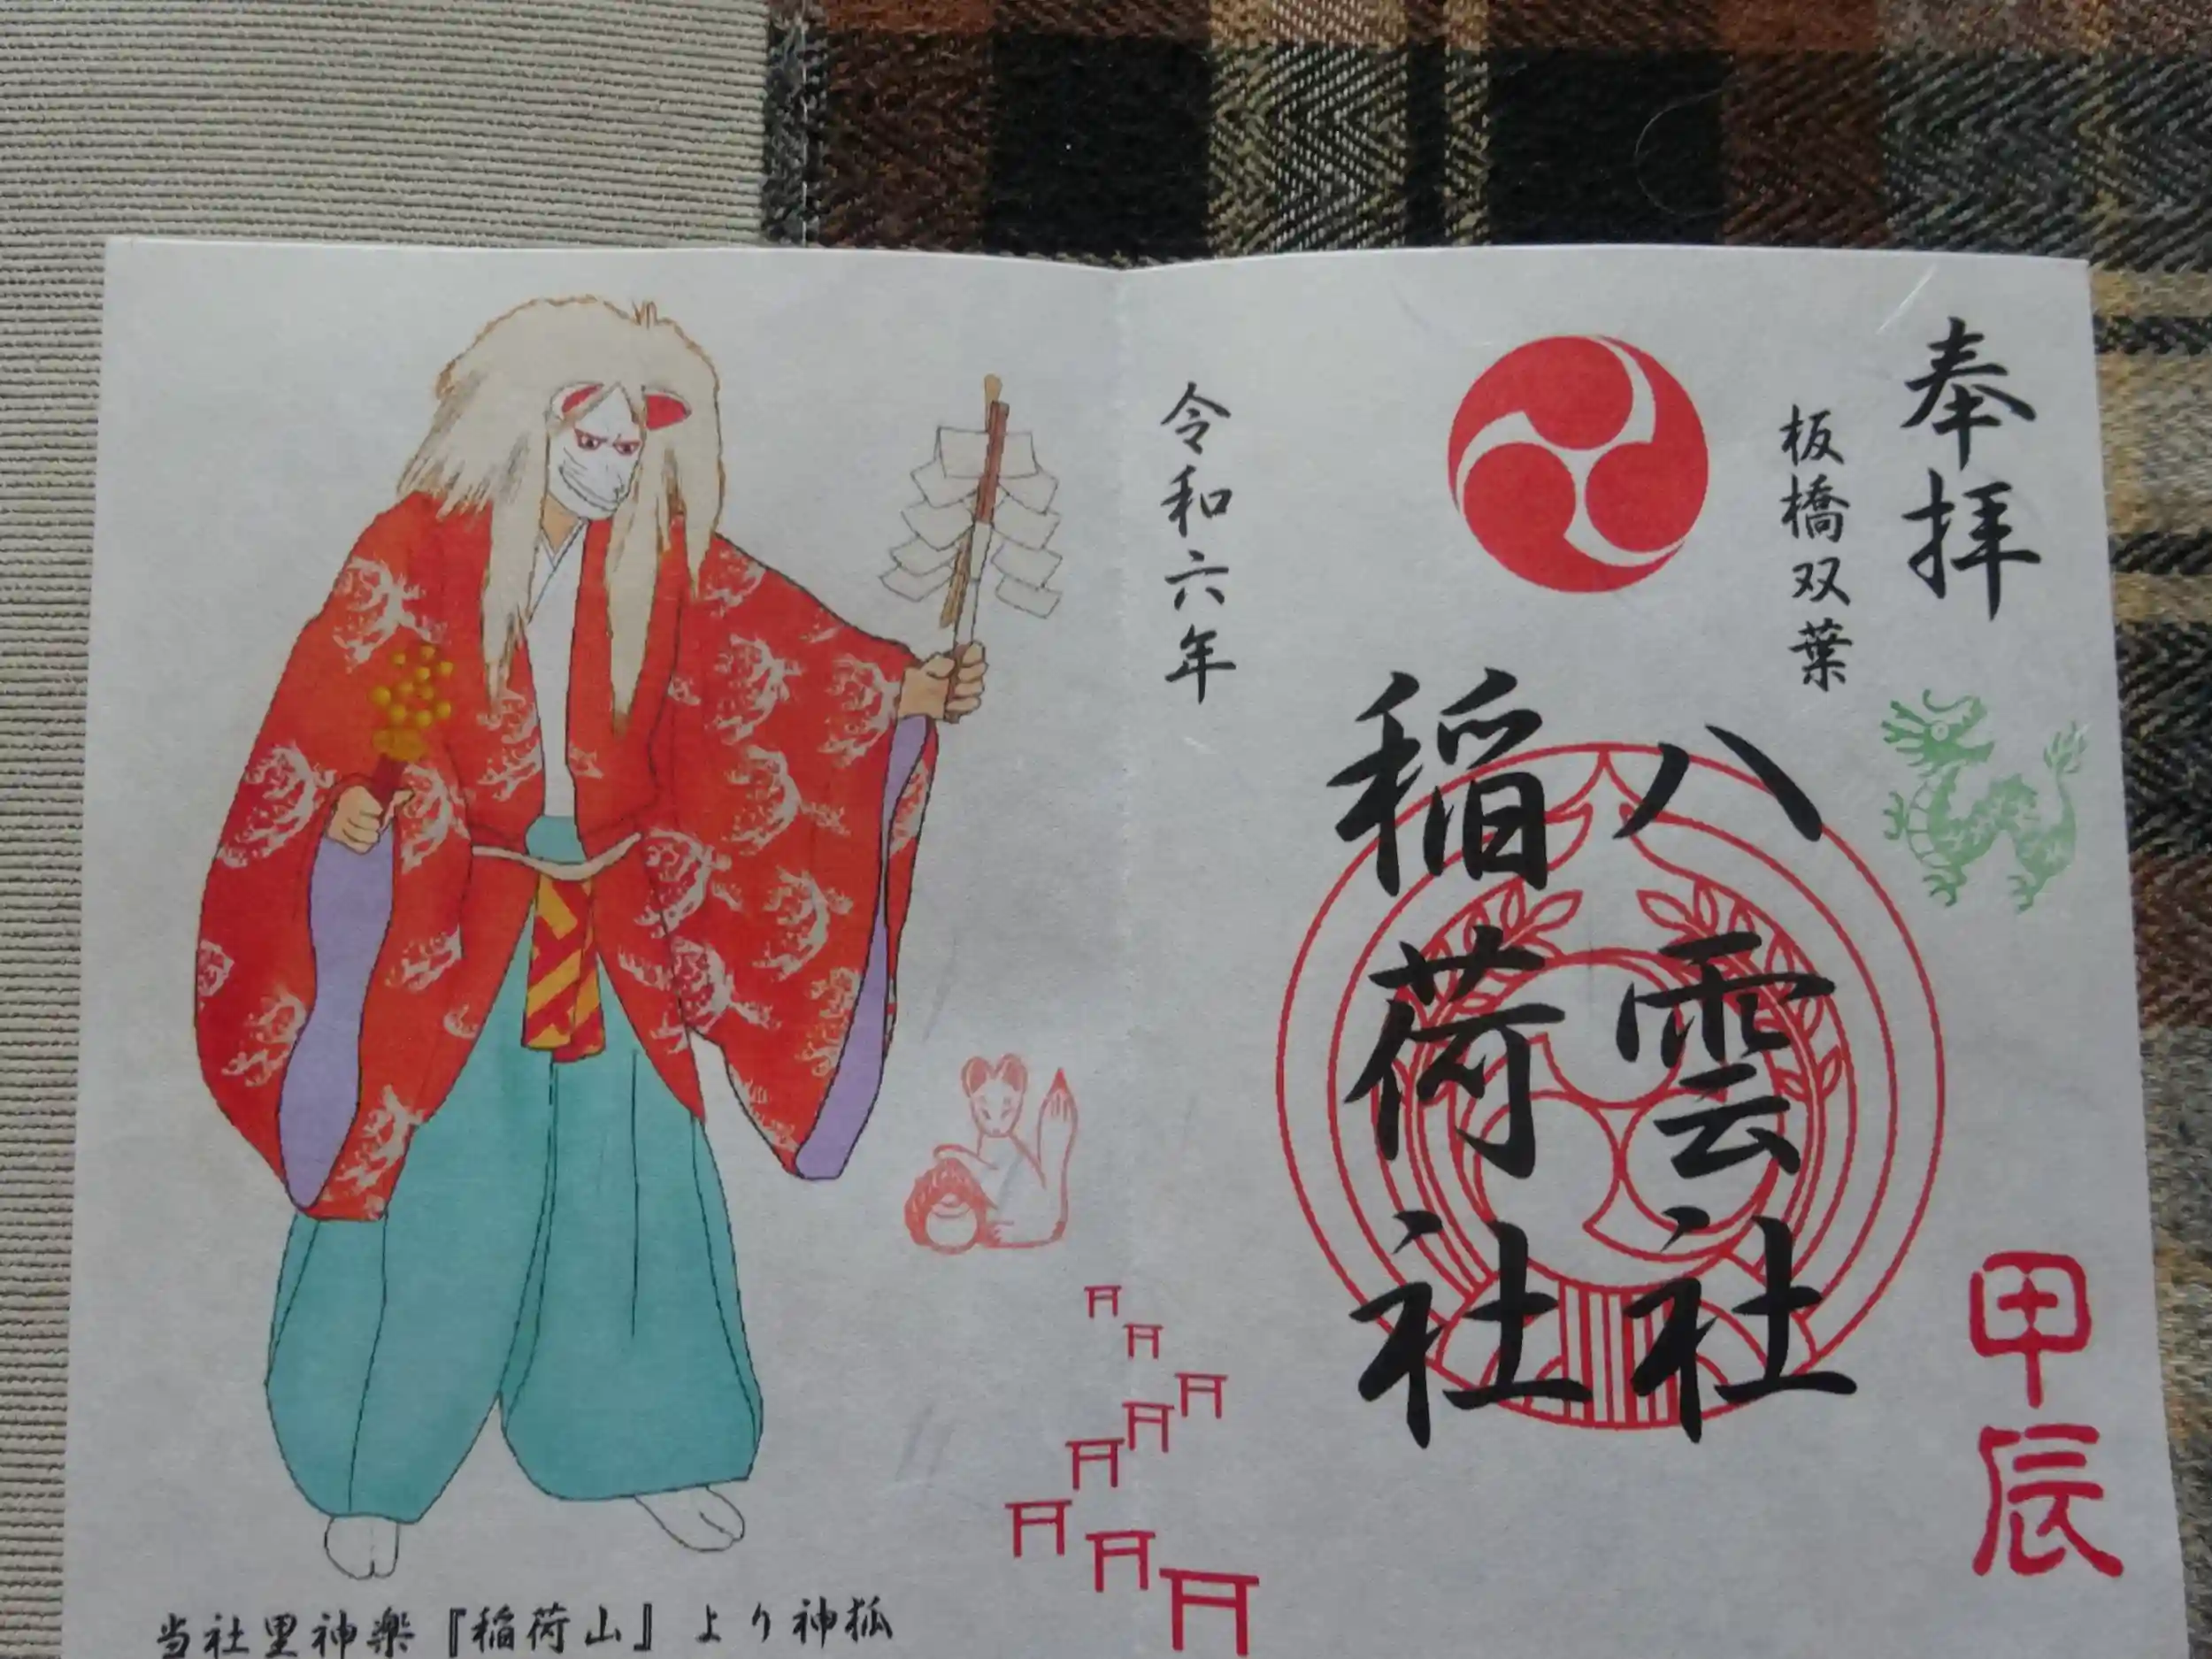 奉拝
板橋双葉
八雲社
稲荷社
令和六年
甲辰
当社里神楽『稲荷山』より神狐